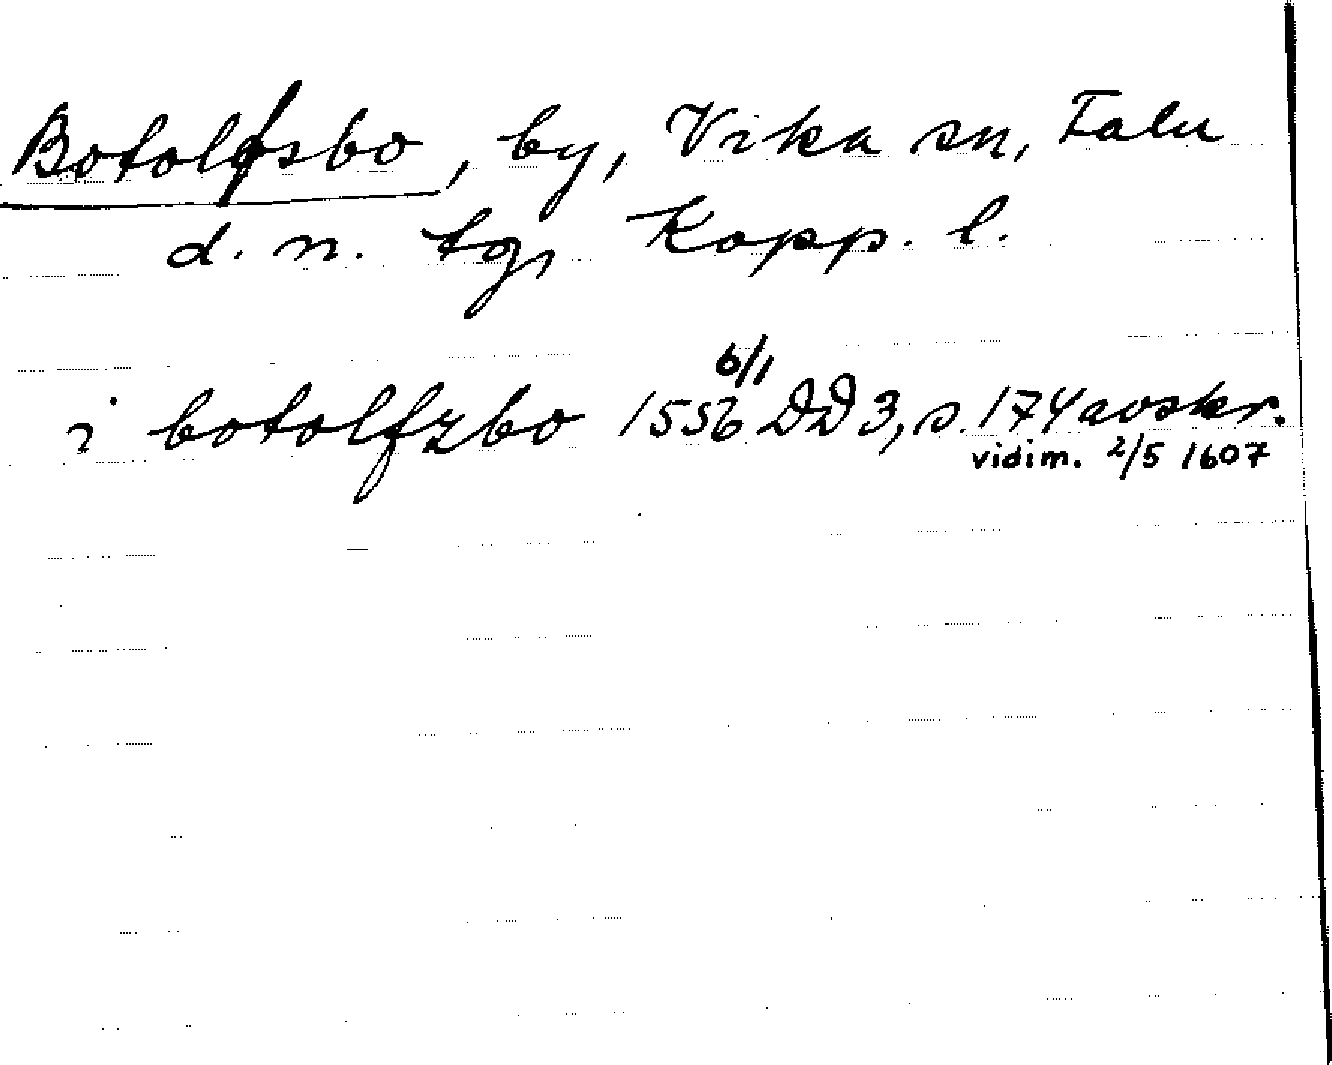 Botolfsbo, by, Vika sn, Falu
d. n. tg, Kopp. l.
i botolfzbo 1556 6/1 DD 3, s. 174 avskr.
vidim. 2/5 1607